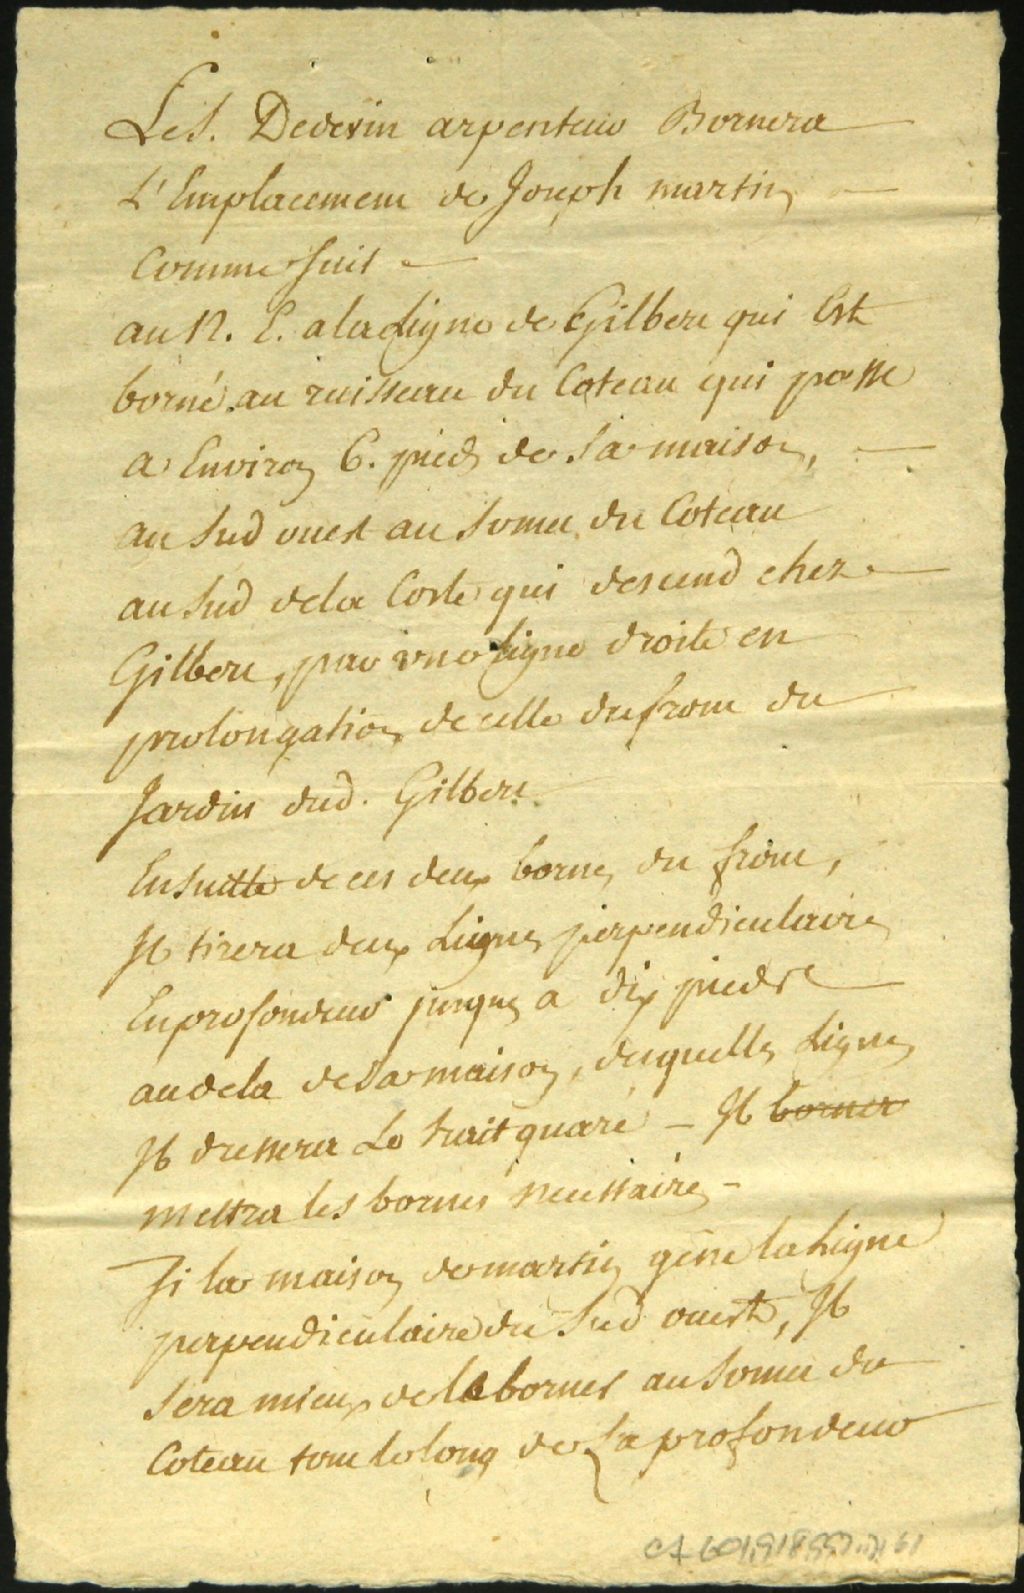 Le S. Devevin arpenteur Bornera
L'Emplacement de Joseph martin
Comme suit
au N. E. a la Ligne de Gilbert qui Est
borné au ruisseau du Coteau qui passe
a Environ 6. pieds de sa maison,
au Sud ouest au Somet du Coteau
au Sud de la Coste qui descend chez
Gilbert, par une ligne droite en
prolongation de celle du front du
Jardin dud. Gilbert
Ensuitte de ces deux bornes du front,
Il tirera deux Lignes perpendiculaires
En profondeur jusques a dix pieds
au dela de Sa maison, desquelles Lignes
Il dressera Le trait quaré – Il borner
mettra les bornes necessaires –
Si la maison de martin gêne la Ligne
perpendiculaire du Sud ouest, Il
Sera mieux de la borner au Somet du
Coteau tout le long de Sa profondeur